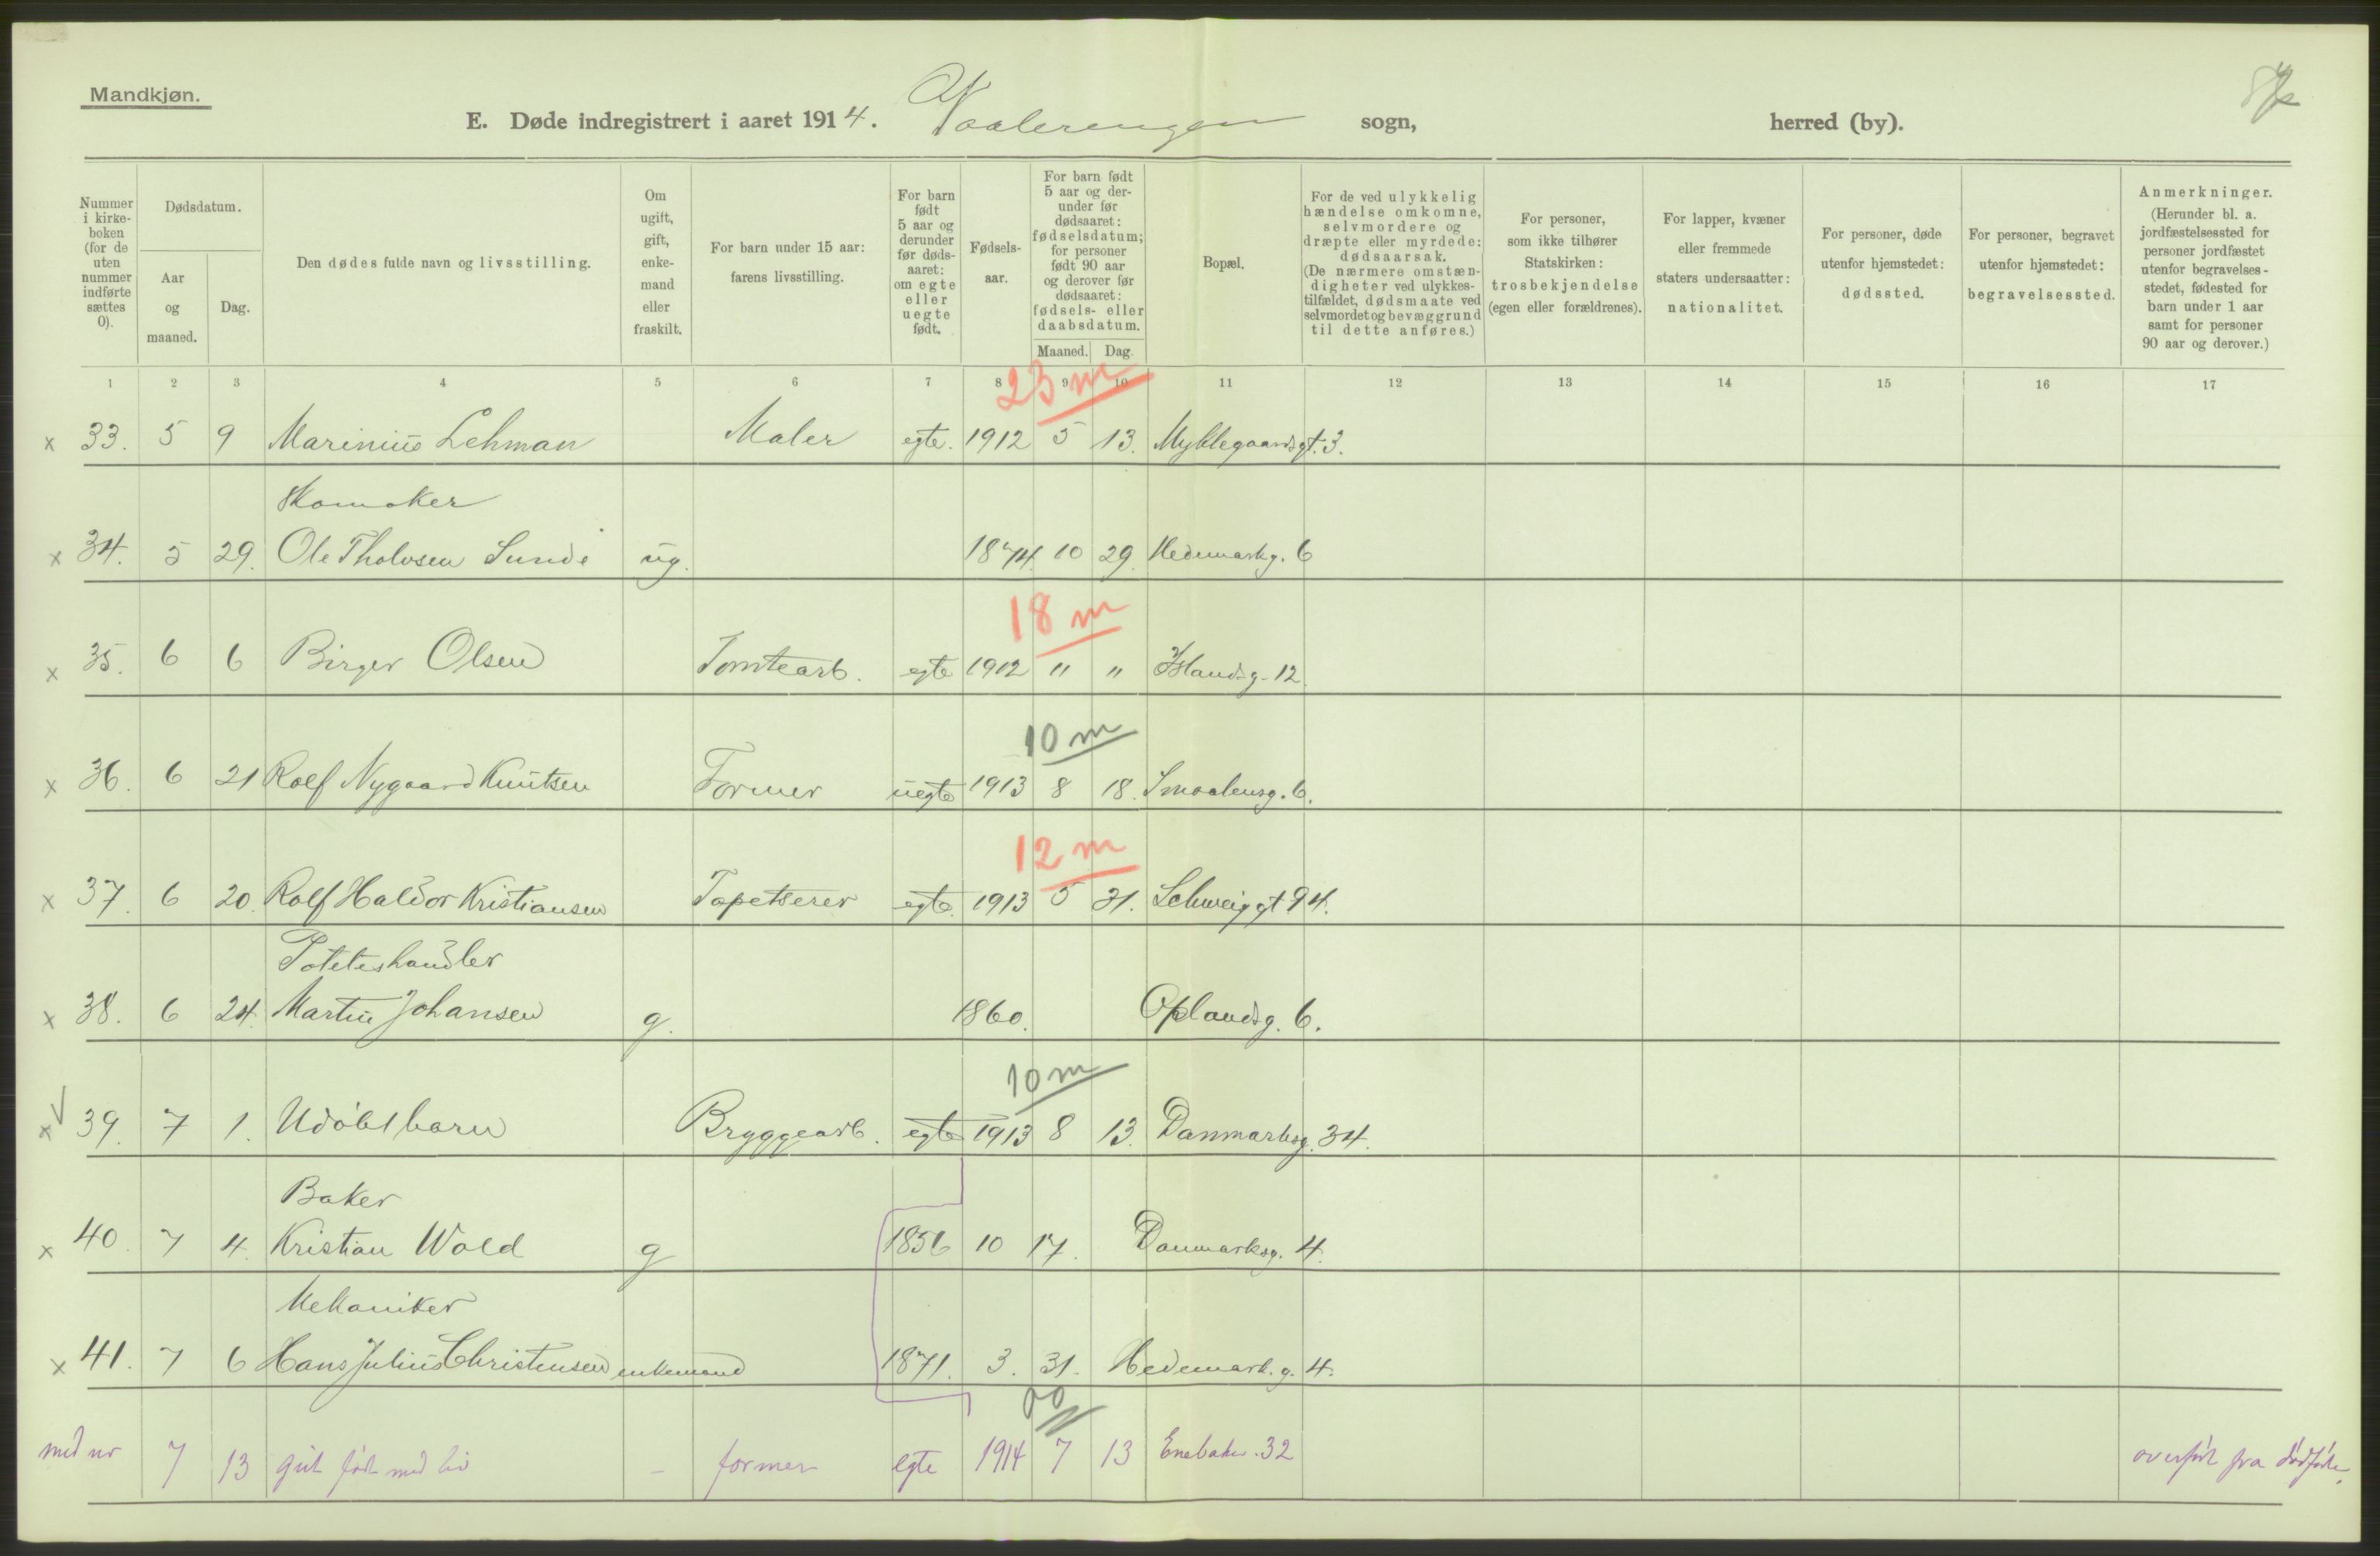 Mandkjøn.
E. Døde indregistrert i aaret 1914. Vaalerengen sogn, herred (by).
Nummer i kirkeboken (for de uten nummer indførte sættes 0).
Dødsdatum.
Aar og maaned.
Dag.
Den dødes fulde navn og livsstilling.
Om ugift, gift, enkemand eller fraskilt.
For barn under 15 aar: farens livsstilling.
For barn født 5 aar og derunder før dødsaaret: om egte eller uegte født.
Fødselsaar.
For barn født 5 aar og derunder før dødsaaret: fødselsdatum; for personer født 90 aar og derover før dødsaaret: fødsels- eller daabsdatum.
Maaned. Dag.
Bopæl.
For de ved ulykkelig hændelse omkomne, selvmordere og dræpte eller myrdede: dødsaarsak. (De nærmere omstændigheter ved ulykkestilfældet, dødsmaate ved selvmordet og bevæggrund til dette anføres.)
For personer, som ikke tilhører Statskirken: trosbekjendelse (egen eller forældrenes).
For lapper, kvæner eller fremmede staters undersaatter: nationalitet.
For personer, døde utenfor hjemstedet: dødssted.
For personer, begravet utenfor hjemstedet: begravelsessted.
Anmerkninger. (Herunder bl. a. jordfæstelsessted for personer jordfæstet utenfor begravelsesstedet, fødested for barn under 1 aar samt for personer 90 aar og derover.)
1 2 3 4 5 6 7 8 9 10 11 12 13 14 15 16 17
23 m
x 33. 5 9 Marinius Lehman Maler egte. 1912 5 13. Myklegaardsgt. 3.
Skomaker
x 34. 5 29. Ole Tholvsen Sunde ug. 1874. 10 29. Hedemarkg. 6
18 m
x 35. 6 6 Birger Olsen Tomtearb. egte 1912 " " Islandsg. 12.
10 m
x 36. 6 21 Rolf Nygaard Knutsen Former uegte 1913 8 18. Smaalensg. 6.
12 m
x 37. 6 20. Rolf Haldor Kristiansen Tapetserer egte. 1913 5 21. Schweiggt 94.
Poteteshandler
x 38. 6 24. Martin Johansen g. 1860. Oplandsg. 6.
10 m
x 39. 7 1. Udøbt barn Bryggearb. egte 1913 8 13. Danmarksg. 34.
Baker
x 40. 7 4. Kristian Wold g 1856 10 17. Danmarksg. 4.
Mekaniker
x 41. 7 6 Hans Julius Christensen enkemand 1871. 3. 31. Hedemark.g. 4.
00
med nr 7 13 gut født med liv – former egte 1914 7 13 Enebakv. 32 overført fra dødfødte.